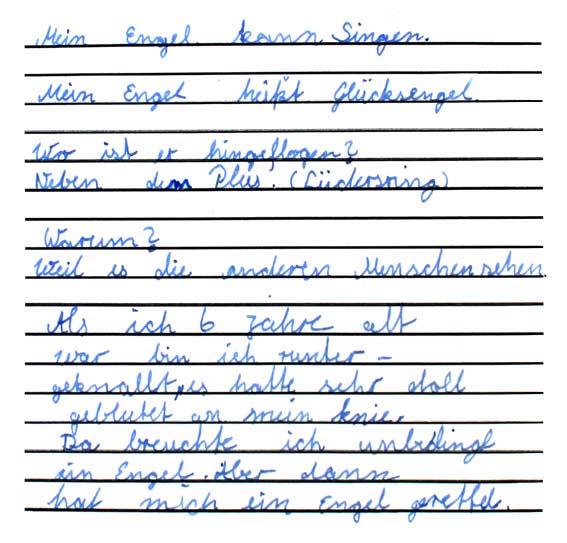 Mein Engel kann Singen.
Mein Engel heißt Glücksengel.
Wo ist er hingeflogen?
Neben dem Plus. (Lüdersring)
Warum?
Weil es die anderen Menschen sehen.
Als ich 6 Jahre alt
war bin ich runter-
geknallt, es hatte sehr doll
geblutet an mein knie.
Da breuchte ich unbedingt
ein Engel. Aber dann
hat mich ein Engel gerettet.